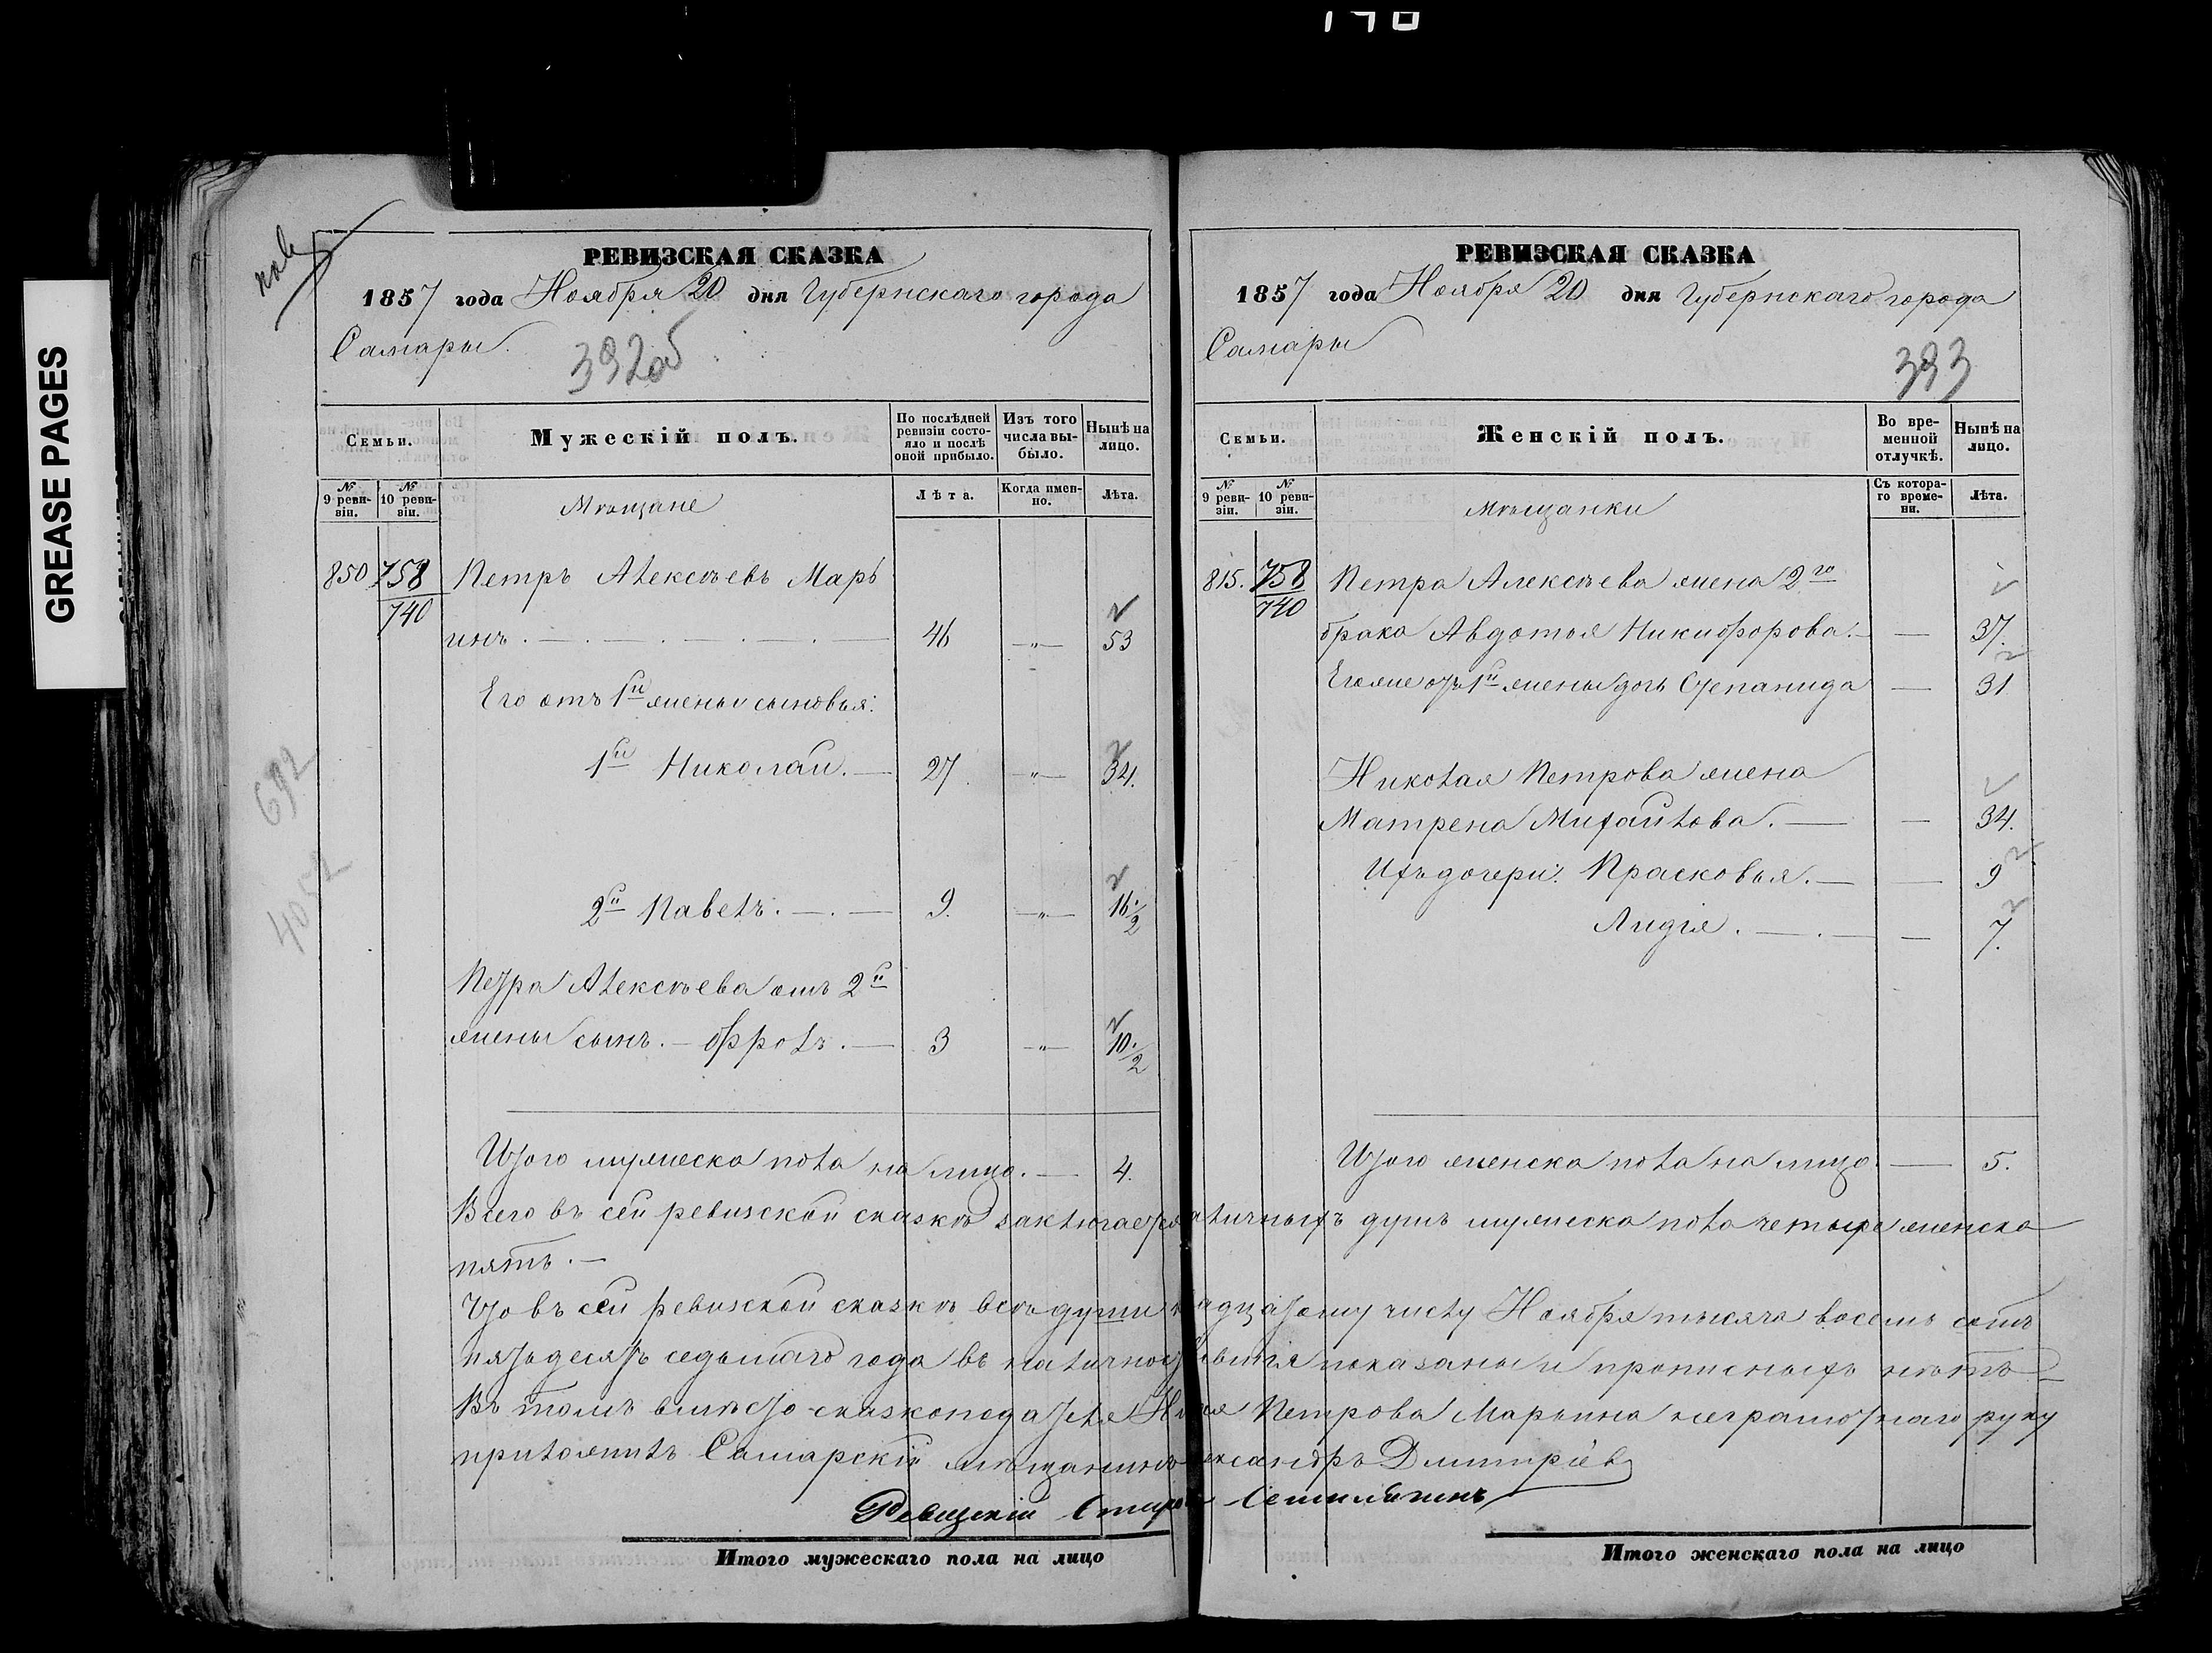 GREASE PAGES
РЕВИЗСКАЯ СКАЗКА
1857 года Ноября 20 дня Губернскаго города
Самары.
392об
Семьи.
Мужескій полъ.
По послѣдней ревизіи состояло и послѣ оной прибыло.
Изъ того числа выбыло.
Нынѣ на лицо.
№ 9 ревизіи.
№ 10 ревизіи.
Мѣщане
Лѣта.
Когда именно.
Лѣта.
850 758 Петръ Алексѣевъ Марь
740 инъ. 46 — " — 53
Его отъ 1й жены сыновья:
1й Николай. 27 — " — 34.
692
2й Павелъ. 9. — " — 16. 1/2
4052
Петра Алексѣева отъ 2й
жены сынъ. — Фролъ. — 3 — " — 10. 1/2
Итого мужеска пола на лицо. — 4.
РЕВИЗСКАЯ СКАЗКА
1857 года Ноября 20 дня Губернскаго города
Самары
393
Семьи.
Женскій полъ.
Во временной отлучкѣ.
Нынѣ на лицо.
№ 9 ревизіи.
№ 10 ревизіи.
Мѣщанки
Съ котораго времени.
Лѣта.
815. 758 Петра Алексѣева жена 2го
740 брака Авдотья Никифорова. — — 37.
Его же отъ 1й жены дочь Степанида — 31
Николая Петрова жена
Матрена Михайлова. — — 34.
Ихъ дочери: Прасковья. — — 9
Лидія. — — 7.
Итого женска пола на лицо. — 5.
Всего въ сей ревизской сказкѣ заключается наличныхъ душъ мужеска пола четыре женска
пять. —
Что въ сей ревизской сказкѣ всѣ души к двадцатому числу Ноября тысяча восемь сотъ
пятьдесятъ седьмаго года въ наличности показаны и прописныхъ нѣтъ
Въ томъ вмѣсто сказкоподателя Петрова Марьина неграмотнаго руку
приложилъ Самарскій мѣщанинъ Александръ Дмитріев
Ревизскій
Итого мужескаго пола на лицо
Итого женскаго пола на лицо